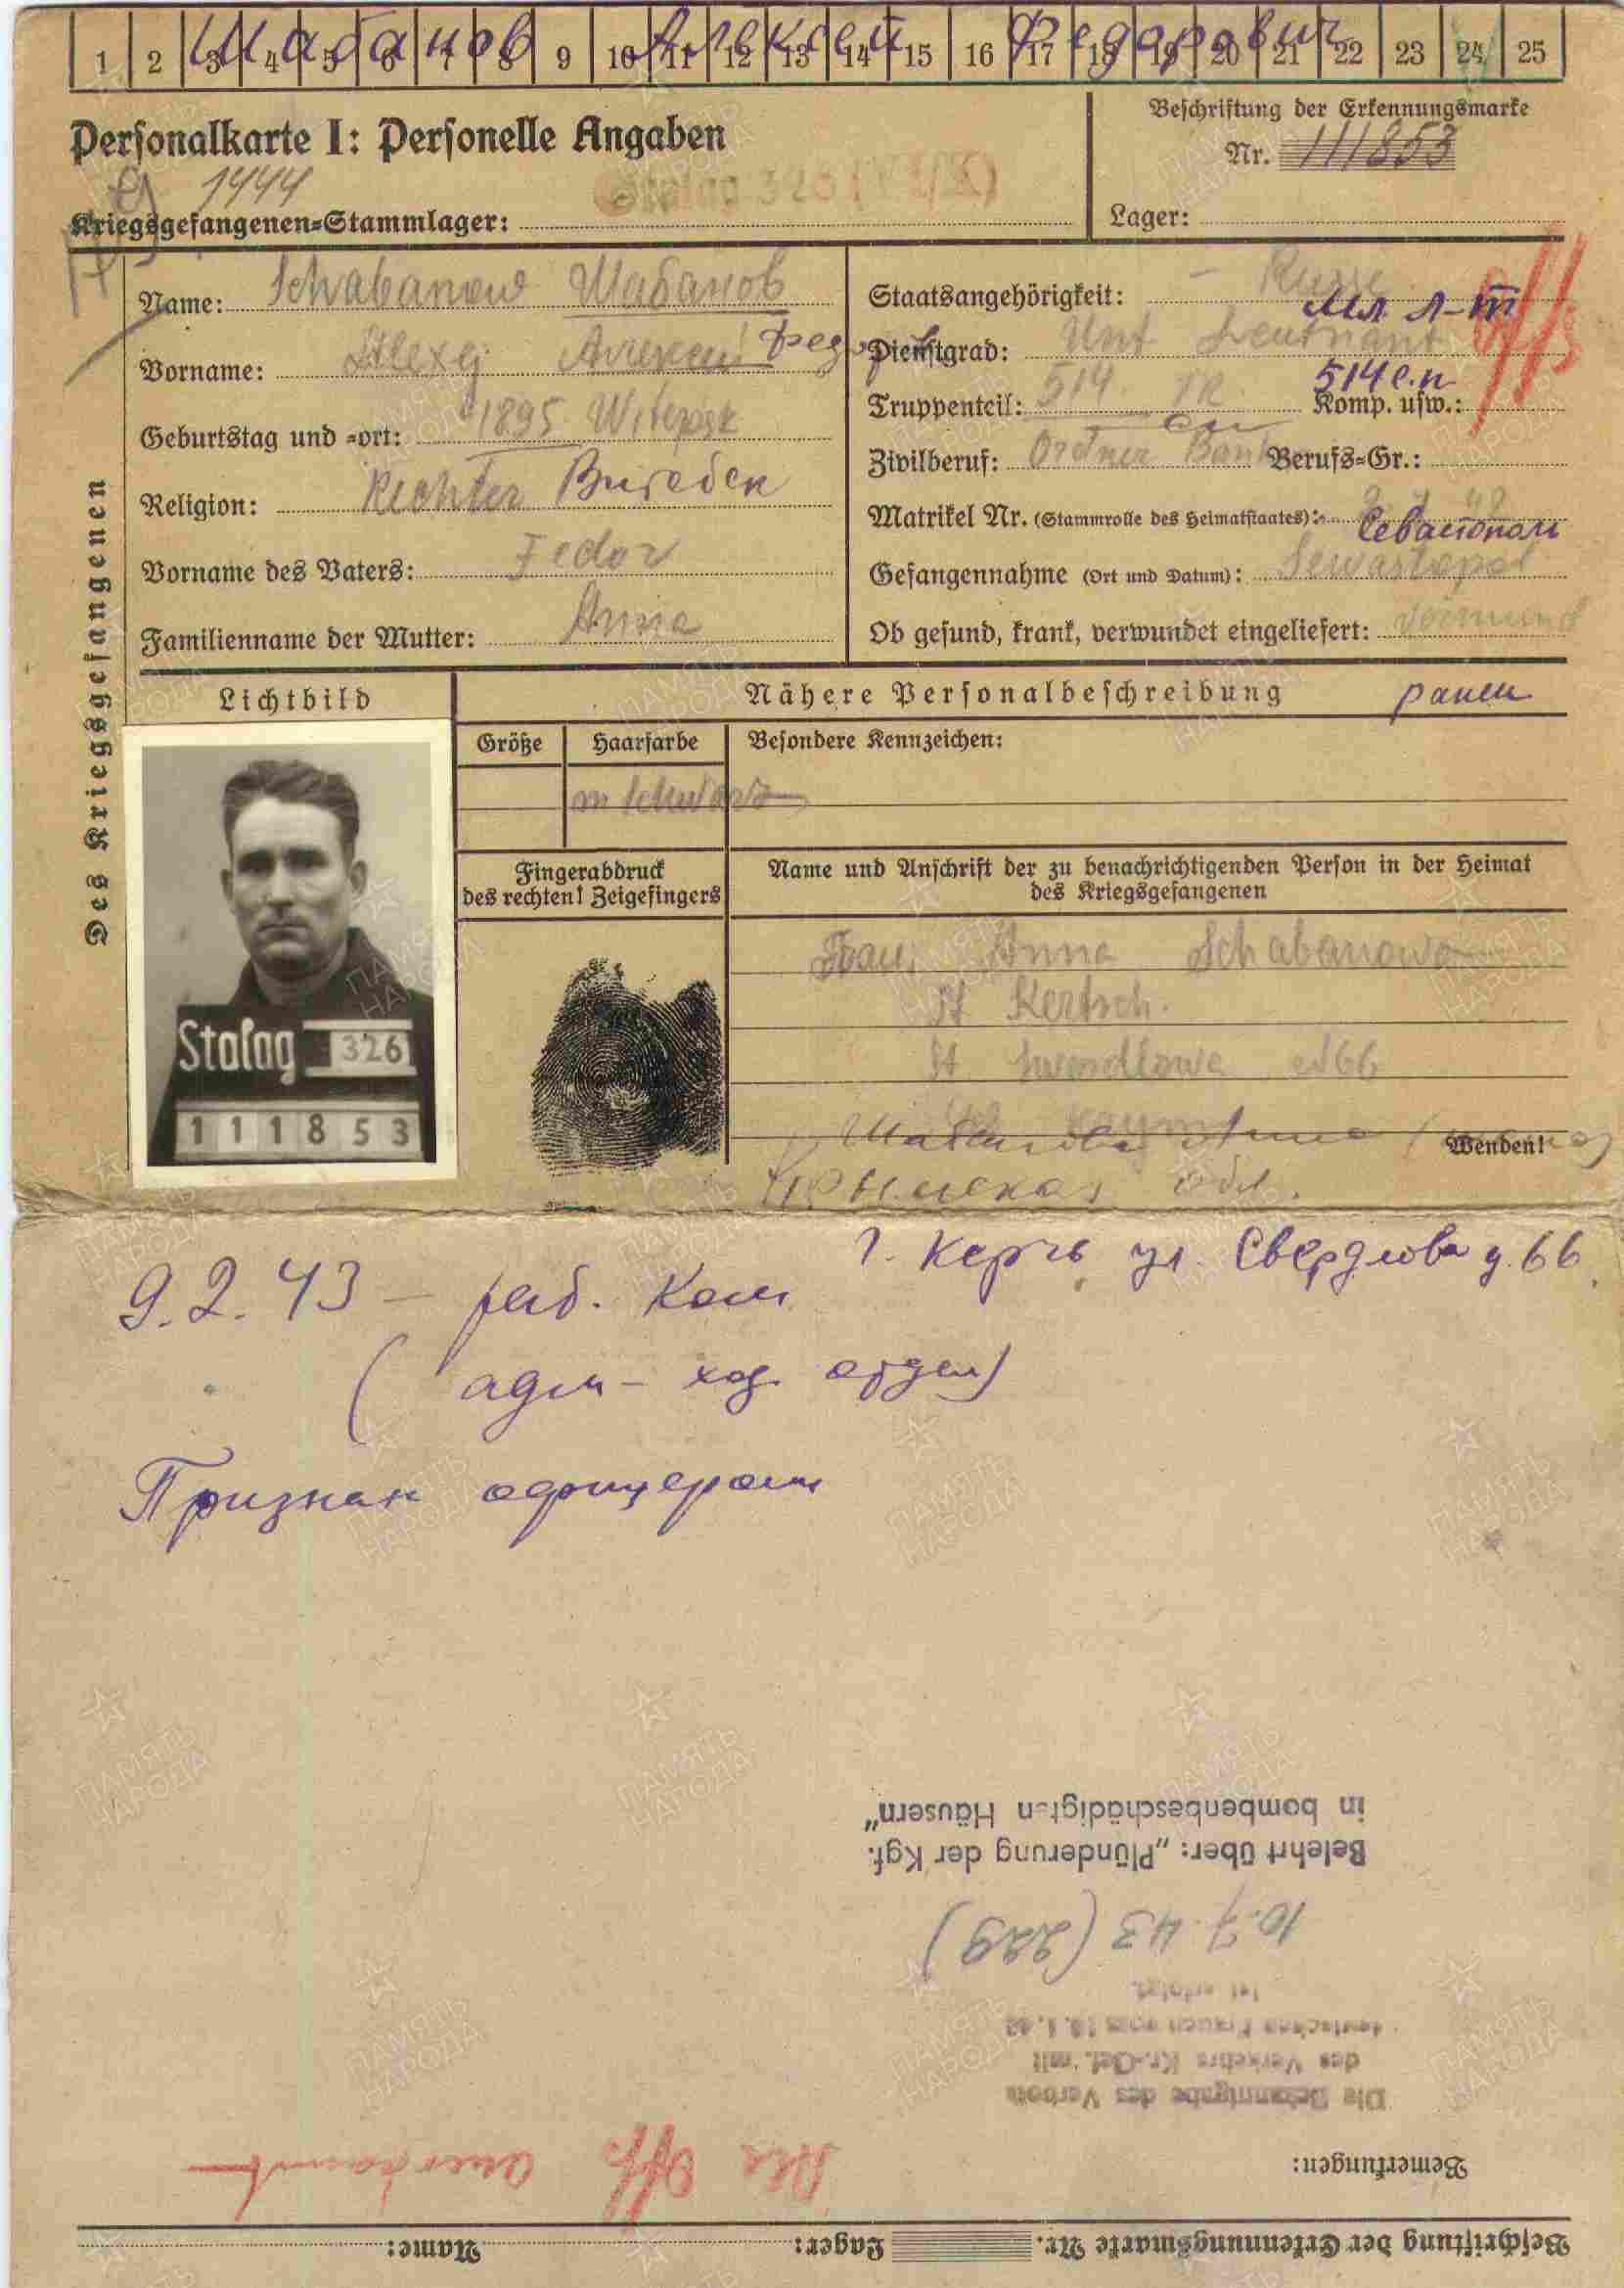 1 2 3 4 5 6 7 8 9 10 11 12 13 14 15 16 17 18 19 20 21 22 23 24 25
Шабанов Алексей Федорович
Personalkarte I: Personelle Angaben
Beschriftung der Erkennungsmarke
Nr. 111853
1444
Kriegsgefangenen-Stammlager: Stalag 326
Lager:
Des Kriegsgefangenen
Name: Schabanow Шабанов
Vorname: Alexej Алексей Федор
Geburtstag und -ort: 1895 Witepsk
Религion: Витебск
Vorname des Vaters: Fedor
Familienname der Mutter: Anna
Staatsangehörigkeit: Russe
мл. л-т
Dienstgrad: Unt Leutnant
514 с.п
Truppenteil: 514. IR. Komp. usw.:
Zivilberuf: Berufs-Gr.:
Matrikel Nr. (Stammrolle des Heimatstaates):
Севастополь
Gefangennahme (Ort und Datum): Sewastopol
Ob gesund, krank, verwundet eingeliefert:
Lichtbild
Nähere Personalbeschreibung ранен
Größe Haarfarbe Besondere Kennzeichen:
schwarz
Stalag 326
111853
Fingerabdruck
des rechten! Zeigefingers
Name und Anschrift der zu benachrichtigenden Person in der Heimat
des Kriegsgefangenen
Frau Anna Schabanowa
St Kertsch.
№ 66
Шабанова Анна
Wenden!
Крымская обл.
г. Керчь ул. Свердлова д. 66
9.2.43 – раб. Ком
(адм – хоз. отдел)
Признан офицером
in bombenbeschädigten Häusern"
Belehrt über: „Plünderung der Kgf.
10.7.43 (229)
ist erfolgt.
deutschen Frauen vom
des Verkehrs Kr.-Gef. mit
Die Bekanntgabe des Verbots
Als Off. anerkannt
Bemerkungen:
Name: Lager: Beschriftung der Erkennungsmarke Nr.
ПАМЯТЬ НАРОДА